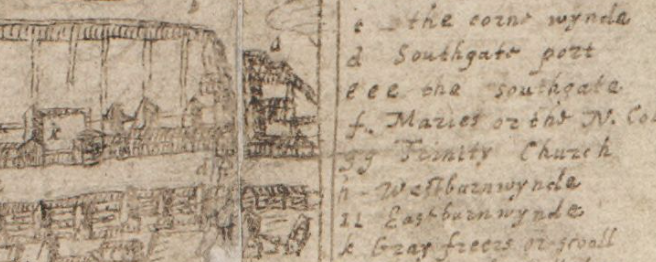 c the corne wynde
d Southgate port
e e e the southgate
f. Maries or the N. Col
gg Trinity Church
h Westburnwynde
11 Eastburnwynde
k Gray freers or scooll